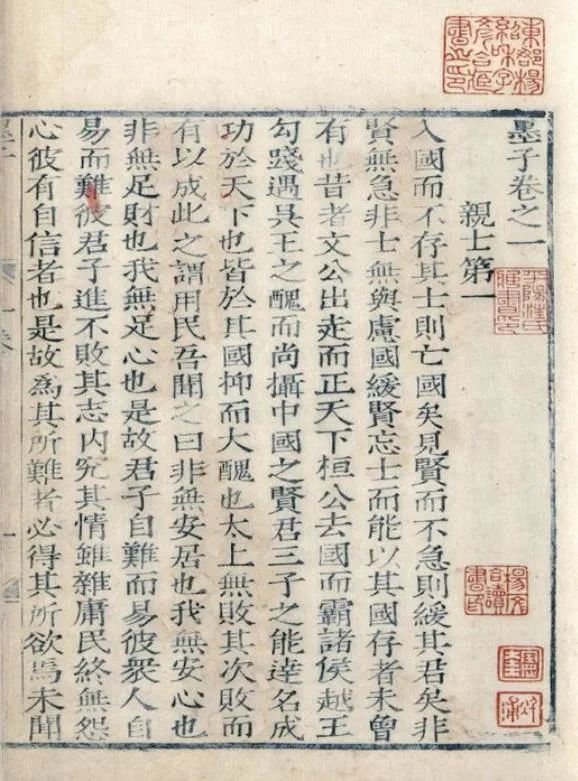 墨子卷之一
親士第一
入國而不存其士則亡國矣見賢而不急則緩其君矣非
賢無急非士無與慮國緩賢忘士而能以其國存者未曾
有也昔者文公出走而正天下桓公去國而霸諸侯越王
勾踐遇吳王之醜而尚攝中國之賢君三子之能逹名成
功於天下也皆於其國抑而大醜也太上無敗其次敗而
有以成此之謂用民吾聞之曰非無安居也我無安心也
非無足財也我無足心也是故君子自難而易彼衆人自
易而難彼君子進不敗其志內究其情雖雜庸民終無怨
心彼有自信者也是故為其所難者必得其所欲焉未聞